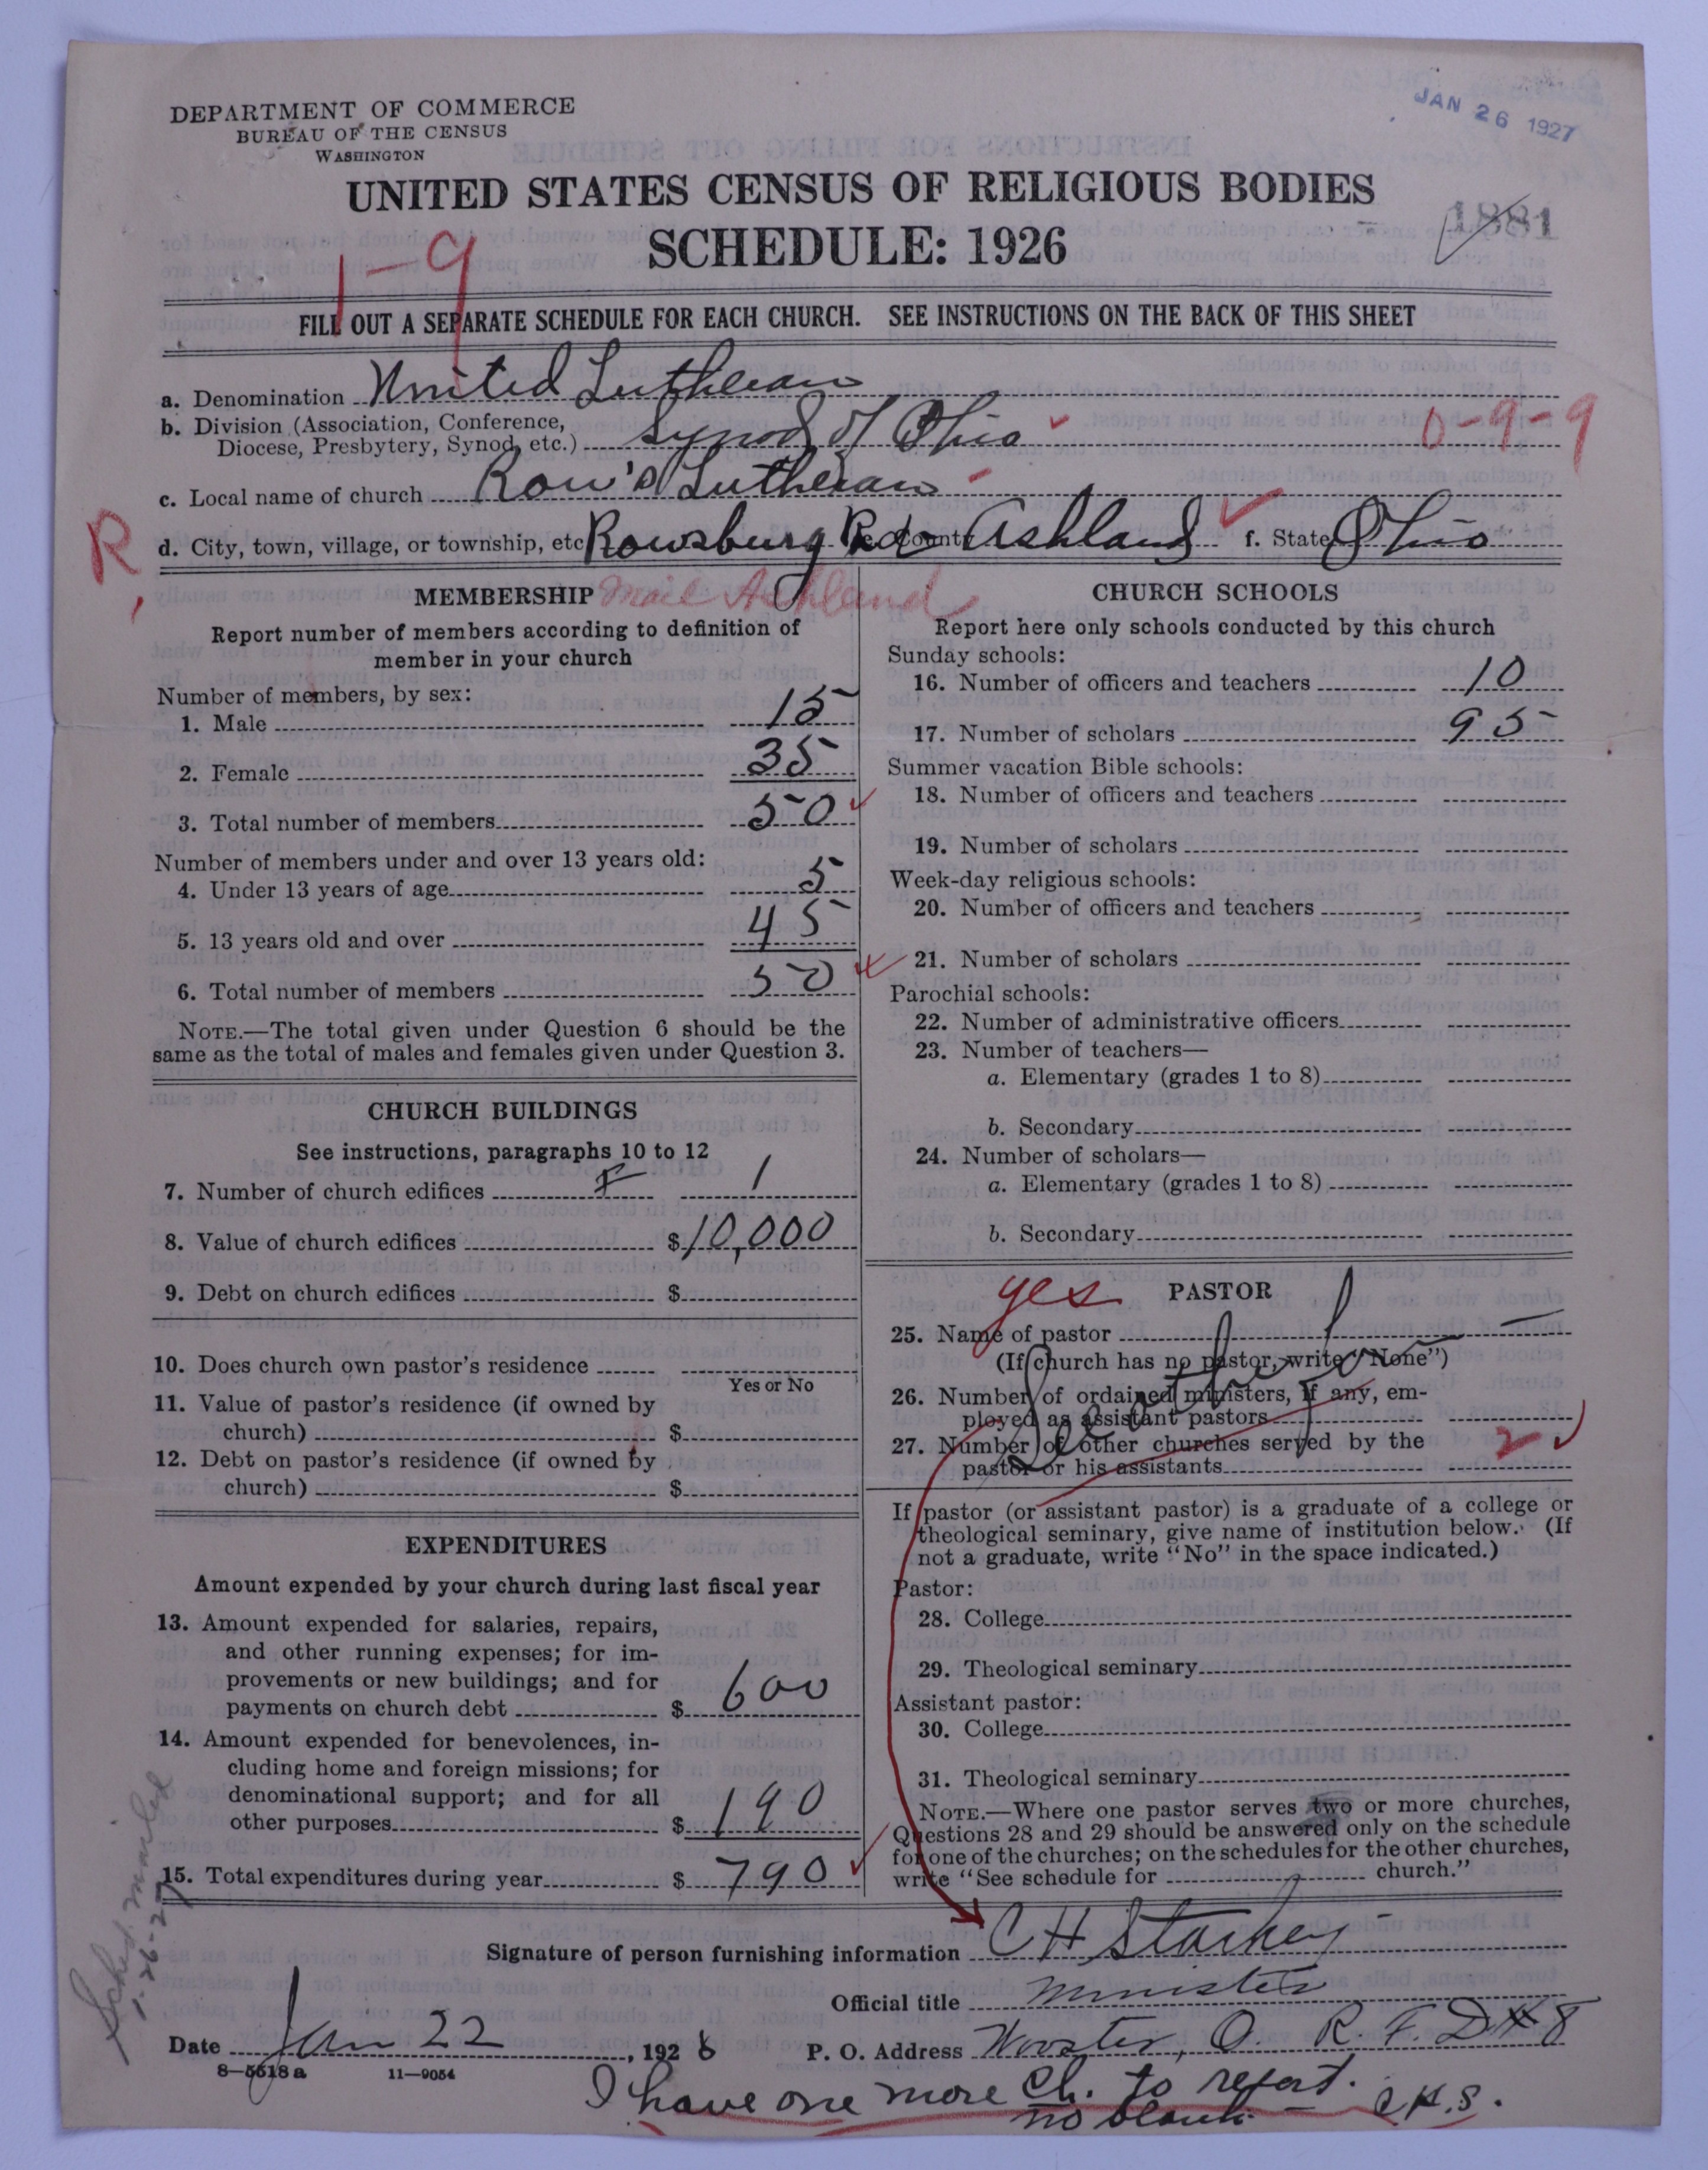 DEPARTMENT OF COMMERCE
BUREAU OF THE CENSUS
WASHINGTON
JAN 26 1927
UNITED STATES CENSUS OF RELIGIOUS BODIES
SCHEDULE: 1926
1881
1-9
FILL OUT A SEPARATE SCHEDULE FOR EACH CHURCH. SEE INSTRUCTIONS ON THE BACK OF THIS SHEET
a. Denomination United Lutheran
b. Division (Association, Conference,
Diocese, Presbytery, Synod, etc.) Synod of Ohio
0-9-9
c. Local name of church Row's Lutheran
R,
d. City, town, village, or township, etc Rowsburg Rd County Ashland f. State Ohio
Mail Ashland
MEMBERSHIP
Report number of members according to definition of
member in your church
Number of members, by sex:
1. Male 15
2. Female 35
3. Total number of members 50
Number of members under and over 13 years old:
4. Under 13 years of age 5
5. 13 years old and over 45
6. Total number of members 50
NOTE.—The total given under Question 6 should be the
same as the total of males and females given under Question 3.
CHURCH BUILDINGS
See instructions, paragraphs 10 to 12
7. Number of church edifices 1
8. Value of church edifices $10,000
9. Debt on church edifices $
10. Does church own pastor's residence
Yes or No
11. Value of pastor's residence (if owned by
church) $
12. Debt on pastor's residence (if owned by
church) $
EXPENDITURES
Amount expended by your church during last fiscal year
13. Amount expended for salaries, repairs,
and other running expenses; for im-
provements or new buildings; and for
payments on church debt $ 600
14. Amount expended for benevolences, in-
cluding home and foreign missions; for
denominational support; and for all
other purposes $ 190
15. Total expenditures during year $ 790
CHURCH SCHOOLS
Report here only schools conducted by this church
Sunday schools:
16. Number of officers and teachers 10
17. Number of scholars 95
Summer vacation Bible schools:
18. Number of officers and teachers
19. Number of scholars
Week-day religious schools:
20. Number of officers and teachers
21. Number of scholars
Parochial schools:
22. Number of administrative officers
23. Number of teachers—
a. Elementary (grades 1 to 8)
b. Secondary
24. Number of scholars—
a. Elementary (grades 1 to 8)
b. Secondary
yes PASTOR
25. Name of pastor
(If church has no pastor, write "None")
26. Number of ordained ministers, if any, em-
ployed as assistant pastors
27. Number of other churches served by the
pastor or his assistants 2
If pastor (or assistant pastor) is a graduate of a college or
theological seminary, give name of institution below. (If
not a graduate, write "No" in the space indicated.)
Pastor:
28. College
29. Theological seminary
Assistant pastor:
30. College
31. Theological seminary
NOTE.—Where one pastor serves two or more churches,
Questions 28 and 29 should be answered only on the schedule
for one of the churches; on the schedules for the other churches,
write "See schedule for church."
Sched. mailed
1-26-27
Signature of person furnishing information C H Starkey
Official title Minister
Date Jan 22, 1926 P. O. Address Wooster, O. R. F. D # 8
8-5618 a 11-9054
I have one more Ch. to report.
no blank. C.H.S.